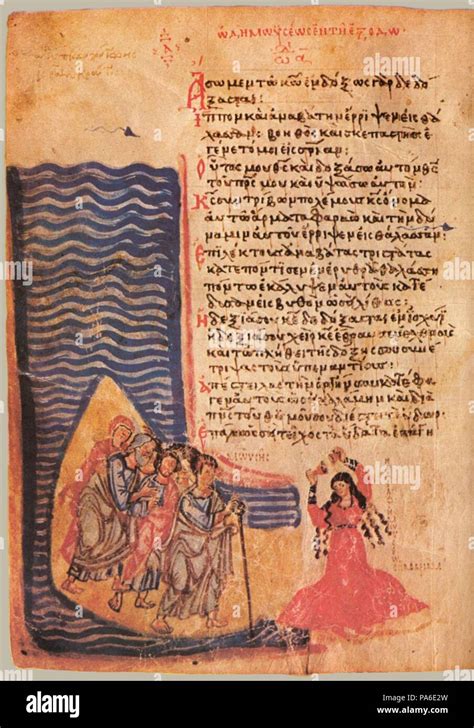 ὠδὴ Μωυσέως ἐν τῇ ἐξόδῳ
ᾠδὴ α
Ἄσωμεν τῷ κω ἐνδόξως γὰρ δεδό
ξασται:
Ἵππον καὶ ἀναβάτην ἔρριψεν εἰς θά
λασσαν: βοηθὸς καὶ σκεπαστὴς ἐ
γένετό μοι εἰς σριαν:
Οὗτός μου θς καὶ δοξάσω αὐτὸν θς
τοῦ πρς μου καὶ ὑψώσω αὐτόν:
Κς συντρίβων πολέμους κς ὄνομα
αὐτῷ ἅρματα Φαραὼ καὶ τὴν δύ
ναμιν αὐτοῦ ἔρριψεν εἰς θάλασσαν:
Ἐπιλέκτους ἀναβάτας τριστάτας
κατεπόντισεν ἐν ἐρυθρᾷ θαλάσσῃ
πόντῳ ἐκάλυψεν αὐτοὺς κατέ
δυσαν εἰς βυθὸν ὡσεὶ λίθος:
Ἡ δεξιά σου κε δεδόξασται ἐν ἰσχύϊ
ἡ δεξιά σου χεὶρ κε ἔθραυσεν
καὶ τῷ πλήθει τῆς δόξης σου συνέ
τριψας τοὺς ὑπεναντίους:
Ἀπέστειλας τὴν ὀργήν σου κατέφα
γεν αὐτοὺς ὡς καλάμην καὶ διὰ
πνς τοῦ θυμοῦ σου διέστη τὸ ὕδωρ:
Ἐπάγη ὡσεὶ τεῖχος τὰ ὕδατα ἐπάγη
Μωυσῆς
alamy
PA6E2W
www.alamy.com